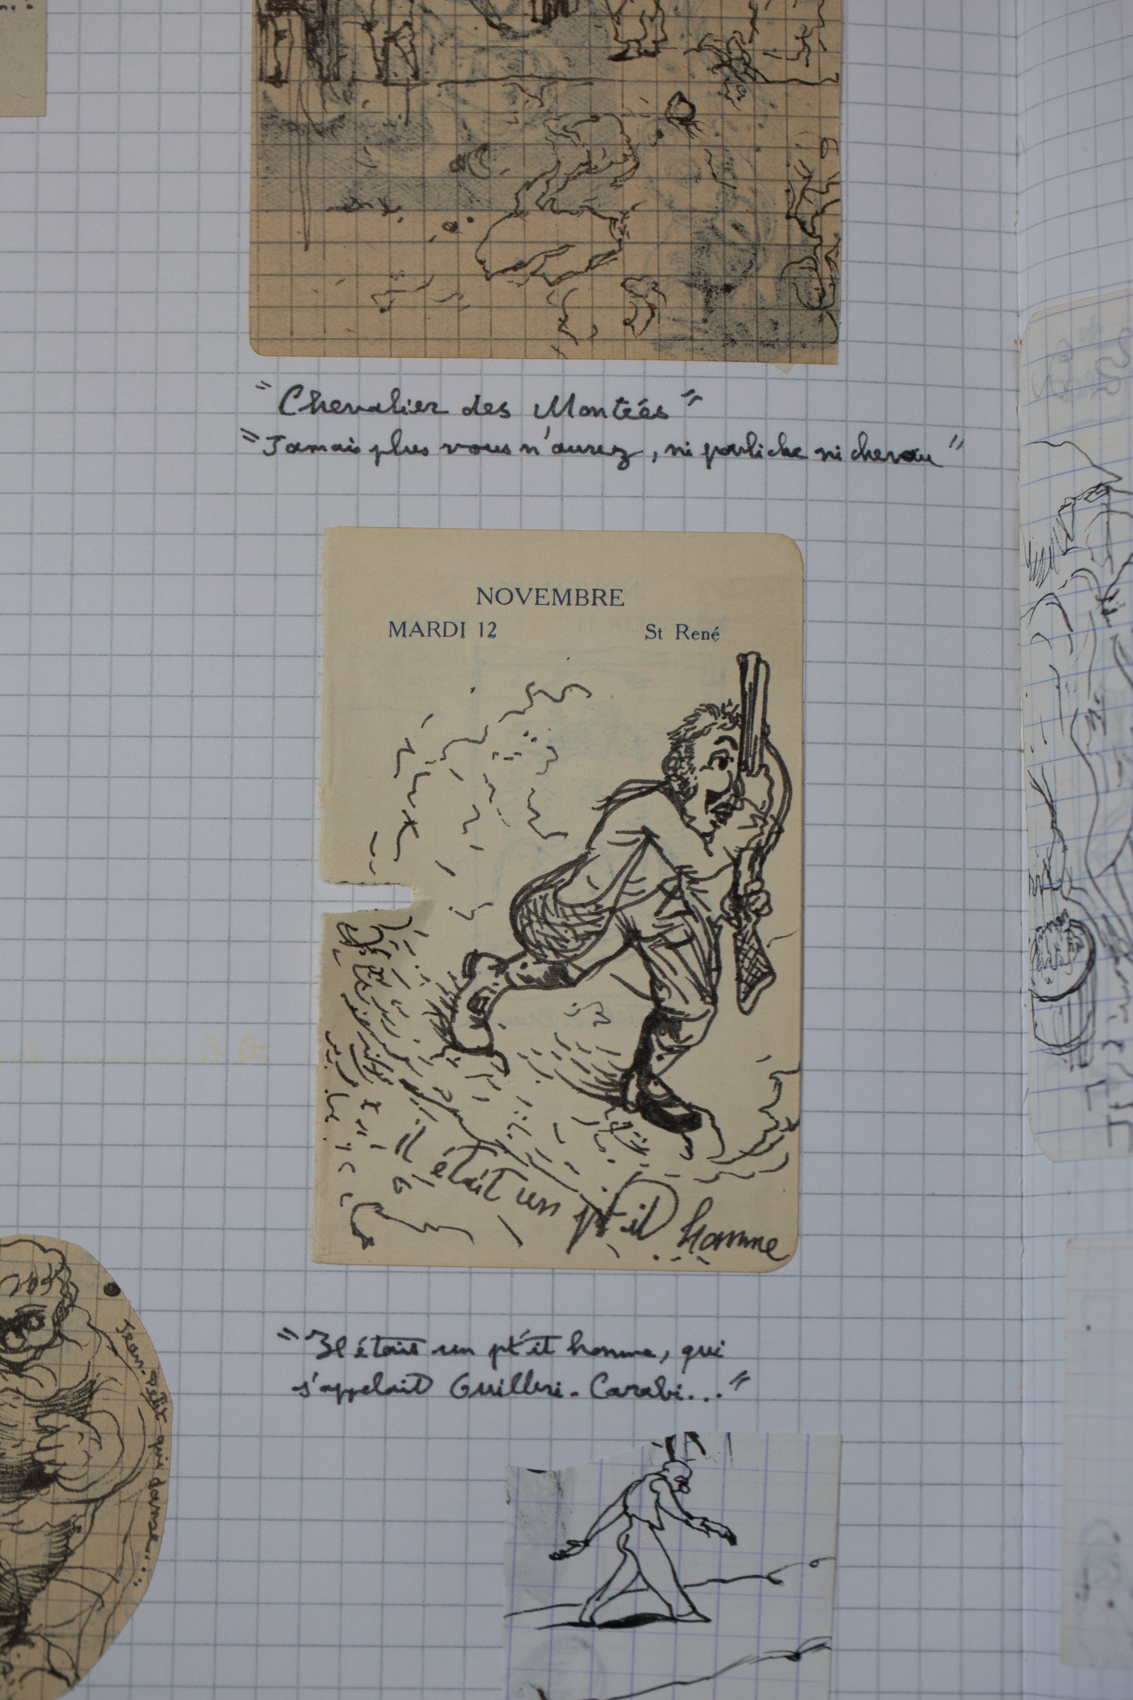 "Chevalier des Montées"
"Jamais plus vous n'aurez, ni pouliche ni chevau"
NOVEMBRE
MARDI 12 St René
Il était un pt'it homme
"Il était un pt'it homme, qui
s'appelait Guilleri - Carabi..."
Jean-Petit qui danse...